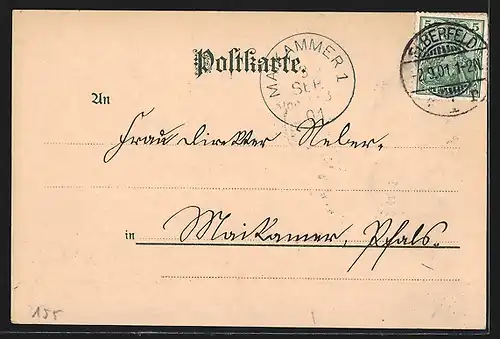 Postkarte
MAIKAMMER 1
3
SEP
01
5 5
ELBERFELD
2.9.01.1-2N.
An
Frau Direktor Neber.
in
Maikamer, Pfals.
155